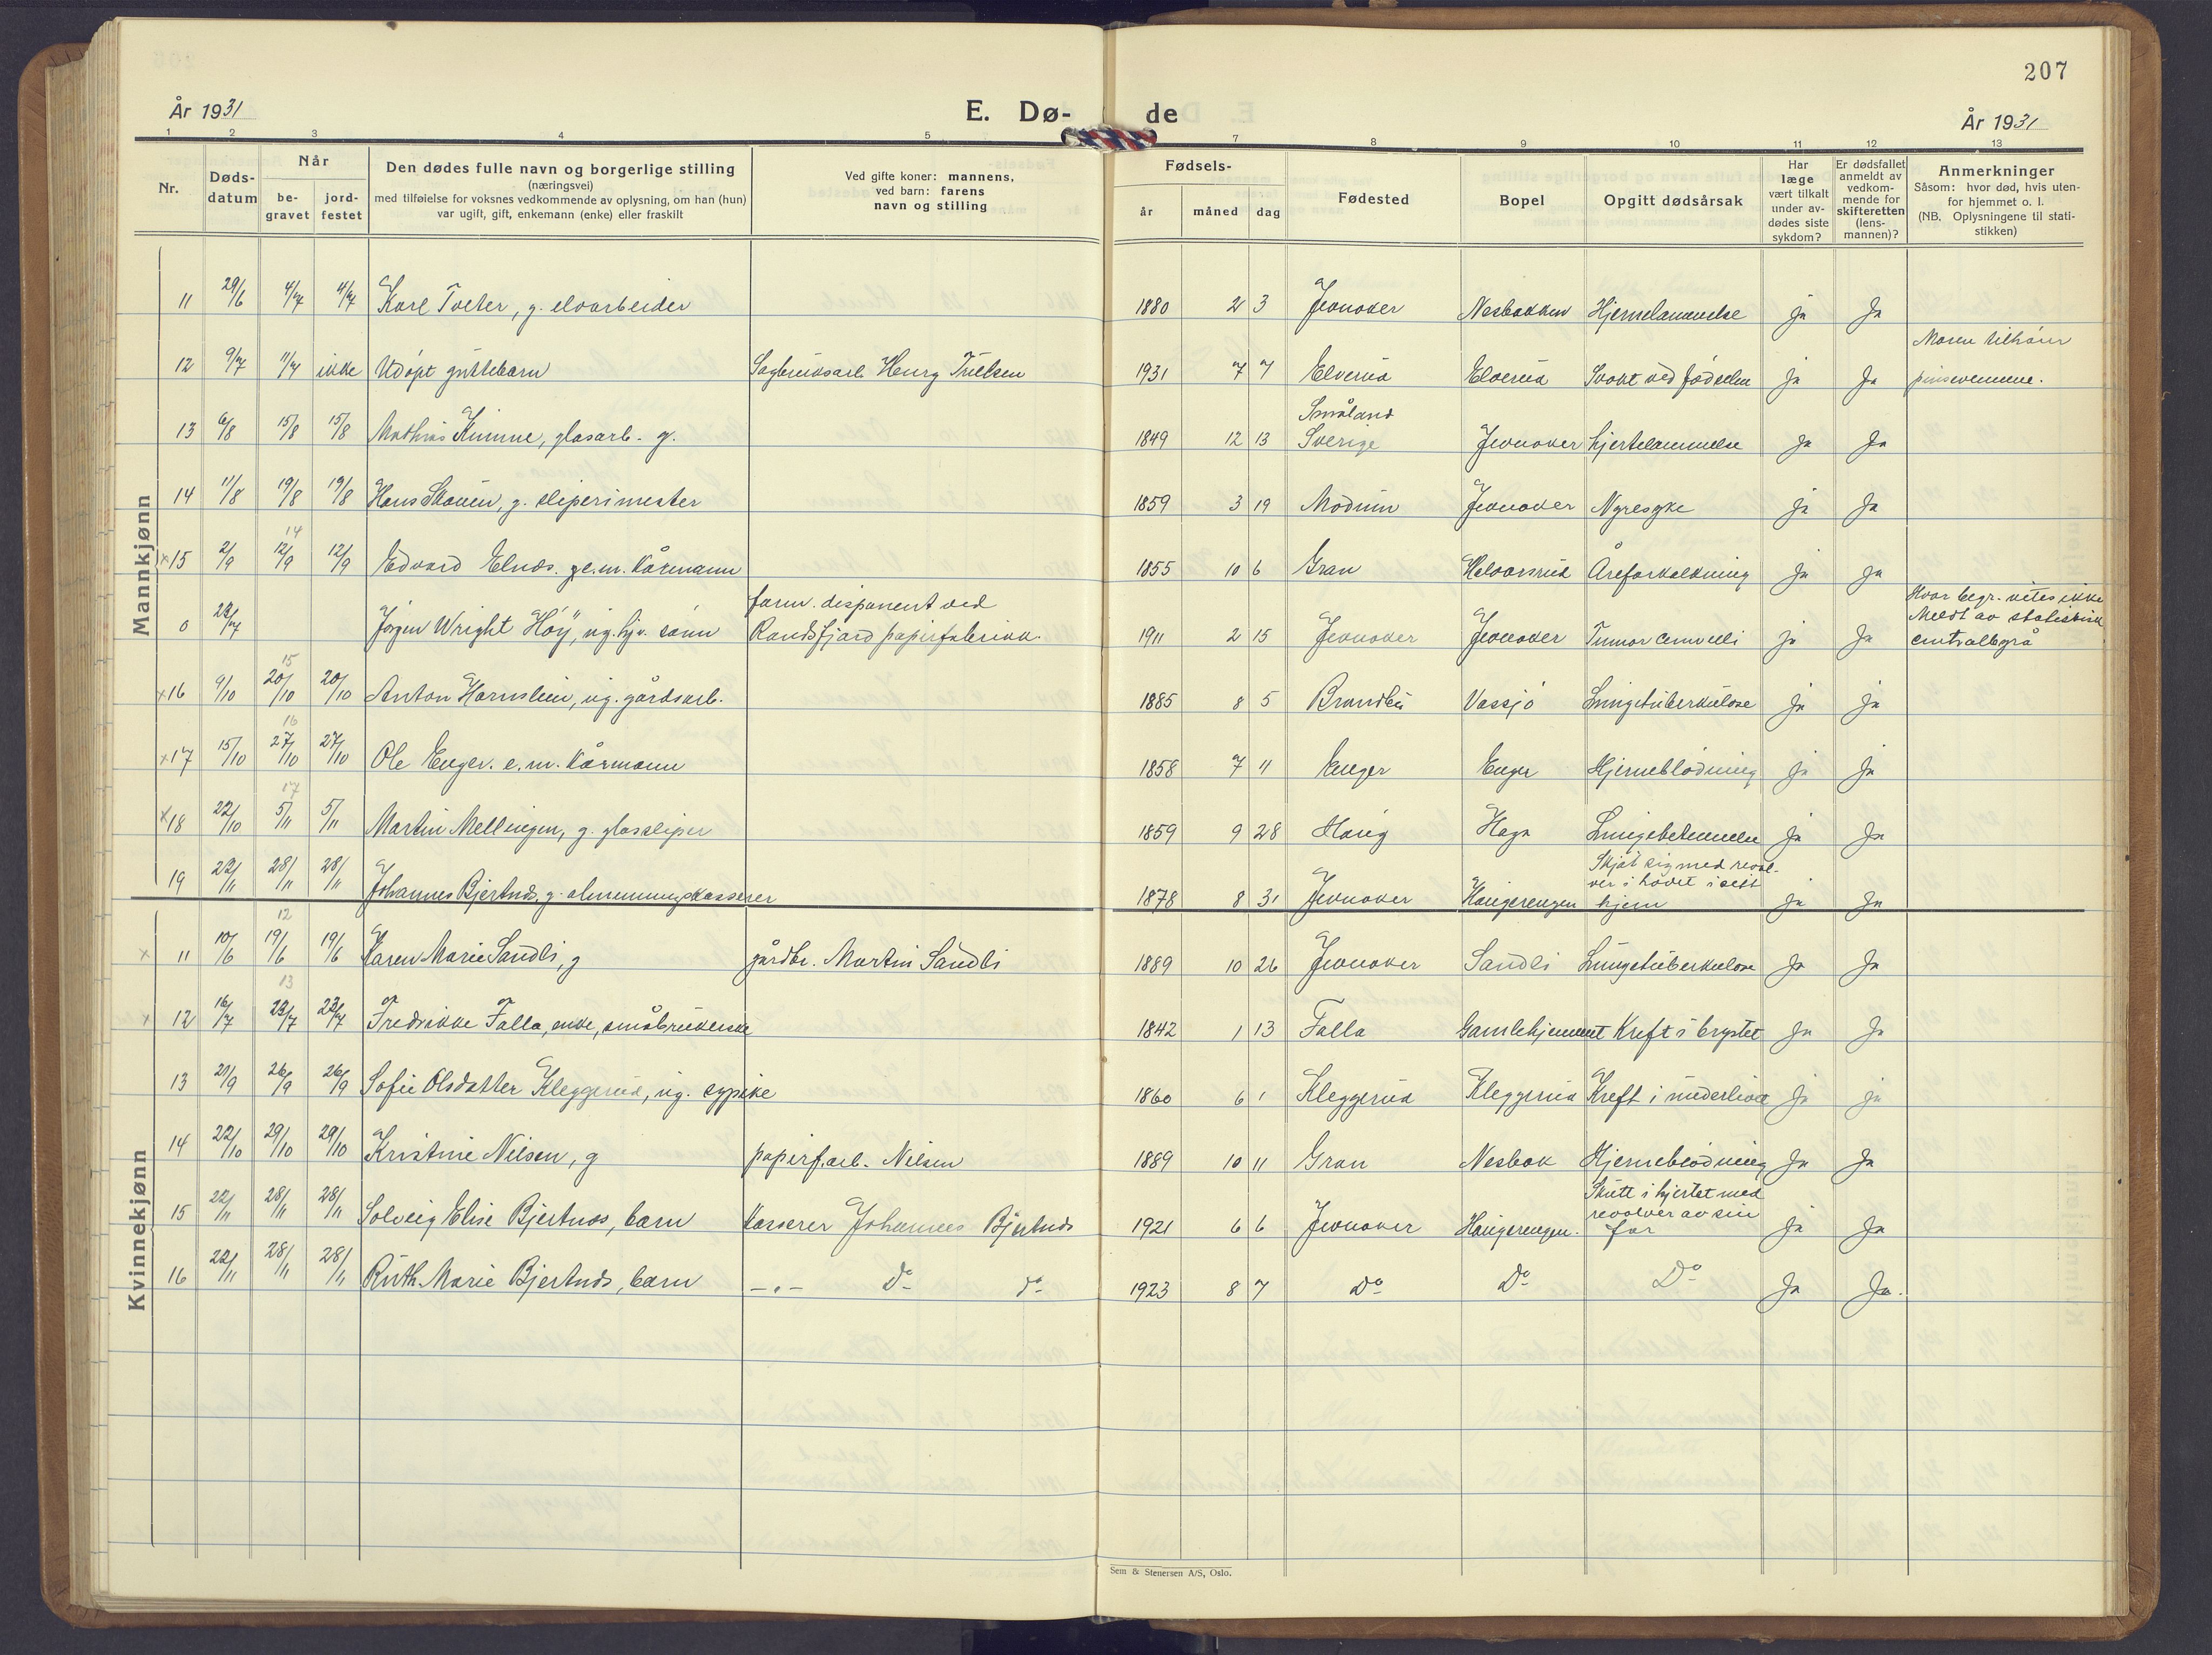 207
År 1931
E. Dø-
de
År 1931
1 2 3 4 5 7 8 9 10 11 12 13
Nr.
Døds-
datum
Når
be-
gravet
jord-
festet
Den dødes fulle navn og borgerlige stilling
(næringsvei)
med tilføielse for voksnes vedkommende av oplysning, om han (hun)
var ugift, gift, enkemann (enke) eller fraskilt
Ved gifte koner: mannens,
ved barn: farens
navn og stilling
Fødsels-
år måned dag
Fødested
Bopel
Opgitt dødsårsak
Har
læge
vært tilkalt
under av-
dødes siste
sykdom?
Er dødsfallet
anmeldt av
vedkom-
mende for
skifteretten
(lens-
mannen)?
Anmerkninger
Såsom: hvor død, hvis uten-
for hjemmet o. l.
(NB. Oplysningene til stati-
stikken)
Mannkjønn
11 29/6 4/7 4/7 Karl Tveter, g. elvarbeider 1880 2 3 Jevnaker Nesbakken Hjernelammelse ja Ja
12 9/7 11/7 ikke Udøpt guttebarn Sagbruksarb. Henry 1931 7 7 Elverud Elverud Svakt ved fødselen ja Ja
Moren tilhører
pinsevennene.
13 6/8 15/8 15/8 Mathias Kinne, glasarb. g. 1849 12 13 Småland
Sverige Jevnaker hjertelammelse Ja Ja
14 11/8 19/8 19/8 Hans Skauen, g. sliperimester 1859 3 19 Modum Jevnaker Nyresyke ja Ja
14
x15 2/9 12/9 12/9 Edvard Elnæs. e.m. kårmann 1855 10 6 Gran Halvorsrud Åreforkalkning ja ja
0 28/7 Jørgen Wright Höÿ, ug. hjv. sønn form. disponent ved
Randsfjord papirfabrikk 1911 2 15 Jevnaker Jevnaker Tumor cerebelli ja Ja
Hvor begr. vites ikke
Meldt av statistisk
centralbyrå
15
x16 9/10 20/10 20/10 Anton Hornslien, ug. gårdsarb. 1885 8 5 Brandbu Vassjø Lungetuberkulose ja ja
16
x17 15/10 27/10 27/10 Ole Enger. e.m. kårmann 1858 7 4 Enger Enger Hjerneblødning ja ja
17
x18 22/10 5/11 5/11 Martin Mellingen, g. glassliper 1859 9 28 Haug Haga Lungebetennelse ja Ja
19 22/11 28/11 28/11 Johannes Bjertnæs, g. almenningskasserer 1878 8 31 Jevnaker Haugerengen Skjøt sig med revol-
ver i hodet i sett
hjem ja Ja
Kvinnekjønn
12
x 11 10/6 19/6 19/6 Karen Marie Sandli, g gårdbr. Martin Sandli 1889 10 26 Jevnaker Sandli Lungetuberkulose Ja Ja
13
x 12 16/7 23/7 23/7 Fredrikke Falla, enke, småbrukerske 1842 1 13 Falla Gamlehjemmet Kreft i brystet Ja Ja
13 21/9 26/9 26/9 Sofie Olsdatter Kleggerud, ug. sypike 1860 6 1 Kleggerud Kleggerud Kreft i underlivet Ja ja
14 22/10 29/10 29/10 Kristine Nilsen, g papirf.arb. Nilsen 1889 10 11 Gran Nesbak Hjerneblødning Ja Ja
15 22/11 28/11 28/11 Solveig Elise Bjertnæs, barn Kasserer Johannes Bjertnæs 1921 6 6 Jevnaker Haugerengen. Skutt i hjertet med
revolver av sin
far ja Ja
16 22/11 28/11 28/11 Ruth Marie Bjertnæs, barn —"— Do do 1923 8 7 do Do Do Ja Ja.
Sem & Stenersen A/S, Oslo.